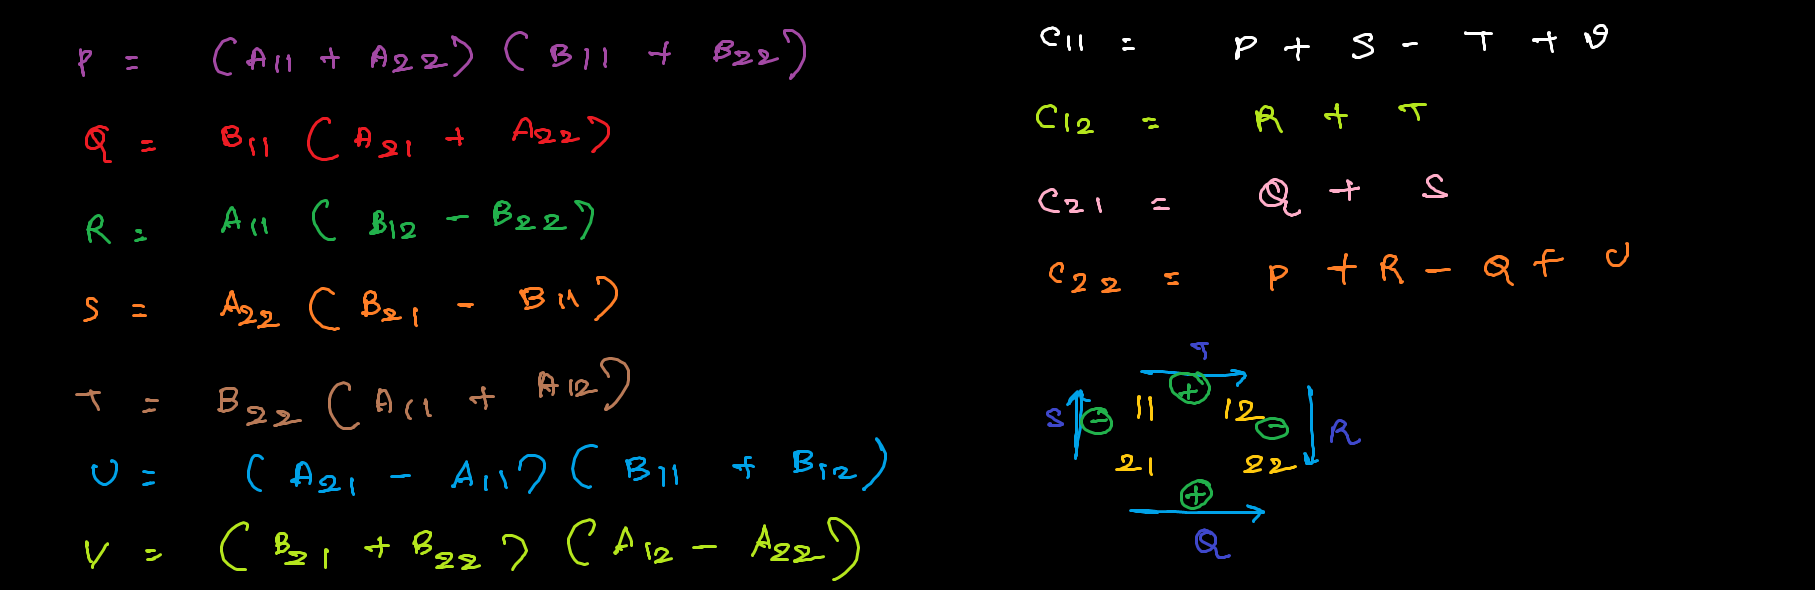 P = (A11 + A22) (B11 + B22)
Q = B11 (A21 + A22)
R = A11 (B12 - B22)
S = A22 (B21 - B11)
T = B22 (A11 + A12)
U = (A21 - A11) (B11 + B12)
V = (B21 + B22) (A12 - A22)
C11 = P + S - T + V
C12 = R + T
C21 = Q + S
C22 = P + R - Q + U
T
+
S - 11 12 - R
21 22
+
Q